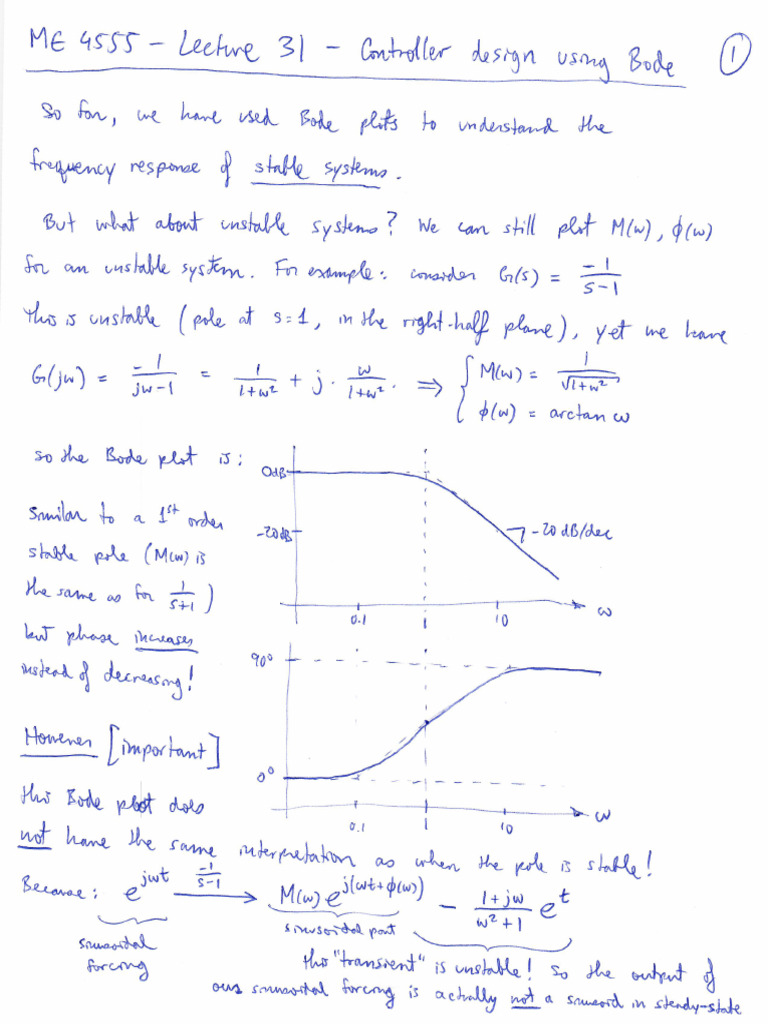 ME 4555 - Lecture 31 - Controller design using Bode ①
So far, we have used Bode plots to understand the
frequency response of stable systems.
But what about unstable systems? We can still plot M(ω), ϕ(ω)
for an unstable system. For example: consider G(s) = -1/(s-1)
This is unstable (pole at s=1, in the right-half plane), yet we have
G(jω) = -1/(jω-1) = 1/(1+ω²) + j · ω/(1+ω²). ⇒ { M(ω) = 1/√(1+ω²)
ϕ(ω) = arctan ω
so the Bode plot is:
similar to a 1st order
stable pole (M(ω) is
the same as for 1/(s+1))
but phase increases
instead of decreasing!
0dB
-20dB
-20 dB/dec
0.1 1 10 ω
90°
0°
0.1 1 10 ω
However [important]
this Bode plot does
not have the same interpretation as when the pole is stable!
Because: e^(jωt) -1/(s-1) → M(ω) e^(j(ωt+ϕ(ω))) - (1+jω)/(ω²+1) e^t
sinusoidal
forcing
sinusoidal part
this "transient" is unstable! so the output of
our sinusoidal forcing is actually not a sinusoid in steady-state